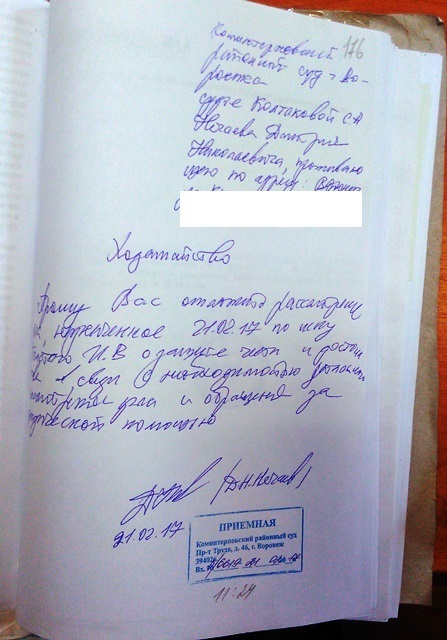 176
Коминтерновский
районный суд г. Во-
ронежа
судье Колтаковой С.А
Нечаева Дмитрия
Николаевича, проживаю
щего по адресу: Воронеж
Ходатайство
Прошу Вас отложить рассмотрение
назначенное 21.02.17 по иску
И.В о защите чести и достои
в связи с необходимостью
и обращения за
помощью
(Д.Н.Нечаев)
21.02.17
ПРИЕМНАЯ
Коминтерновский районный суд
Пр-т Труда, д. 46, г. Воронеж
Вх. №
11:24